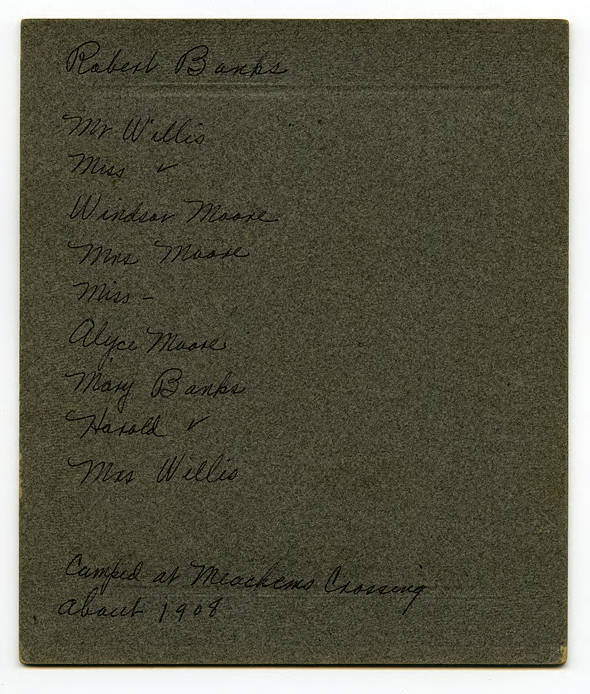 Robert Banks
Mr Willis
Miss ✓
Windsor Moore
Mrs Moore
Miss -
Alyce Moore
Mary Banks
Harold ✓
Mrs Willis
Camped at Meachems Crossing
about 1908